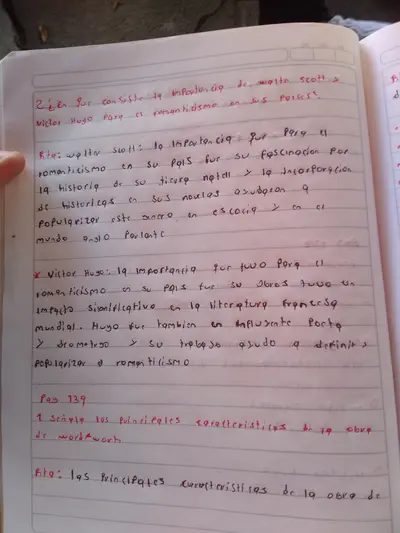 2 ¿En que consiste la importancia de walta scott y
victor Hugo para el romanticismo en sus paises?
Rta: walta scott: la importancia que para el
romanticismo en su pais fue su fascinacion por
la historia de su tierra natal y la incorporacion
de historicas en sus novelas ayudaron a
popularizar este genero en escocia y en el
mundo anglo parlante
* Victor Hugo: la importancia que tuvo para el
romanticismo en su pais fue su obras tuvo un
impacto significativo en la literatura francesa
mundial. Hugo fue tambien un influyente poeta
y dramatrgo y su trabajo ayudo a definir y
popularizar e romanticismo
Pag 139
1 señala las principales caracteristicas de la obra
de
Rta: las principales caracteristicas de la obra de